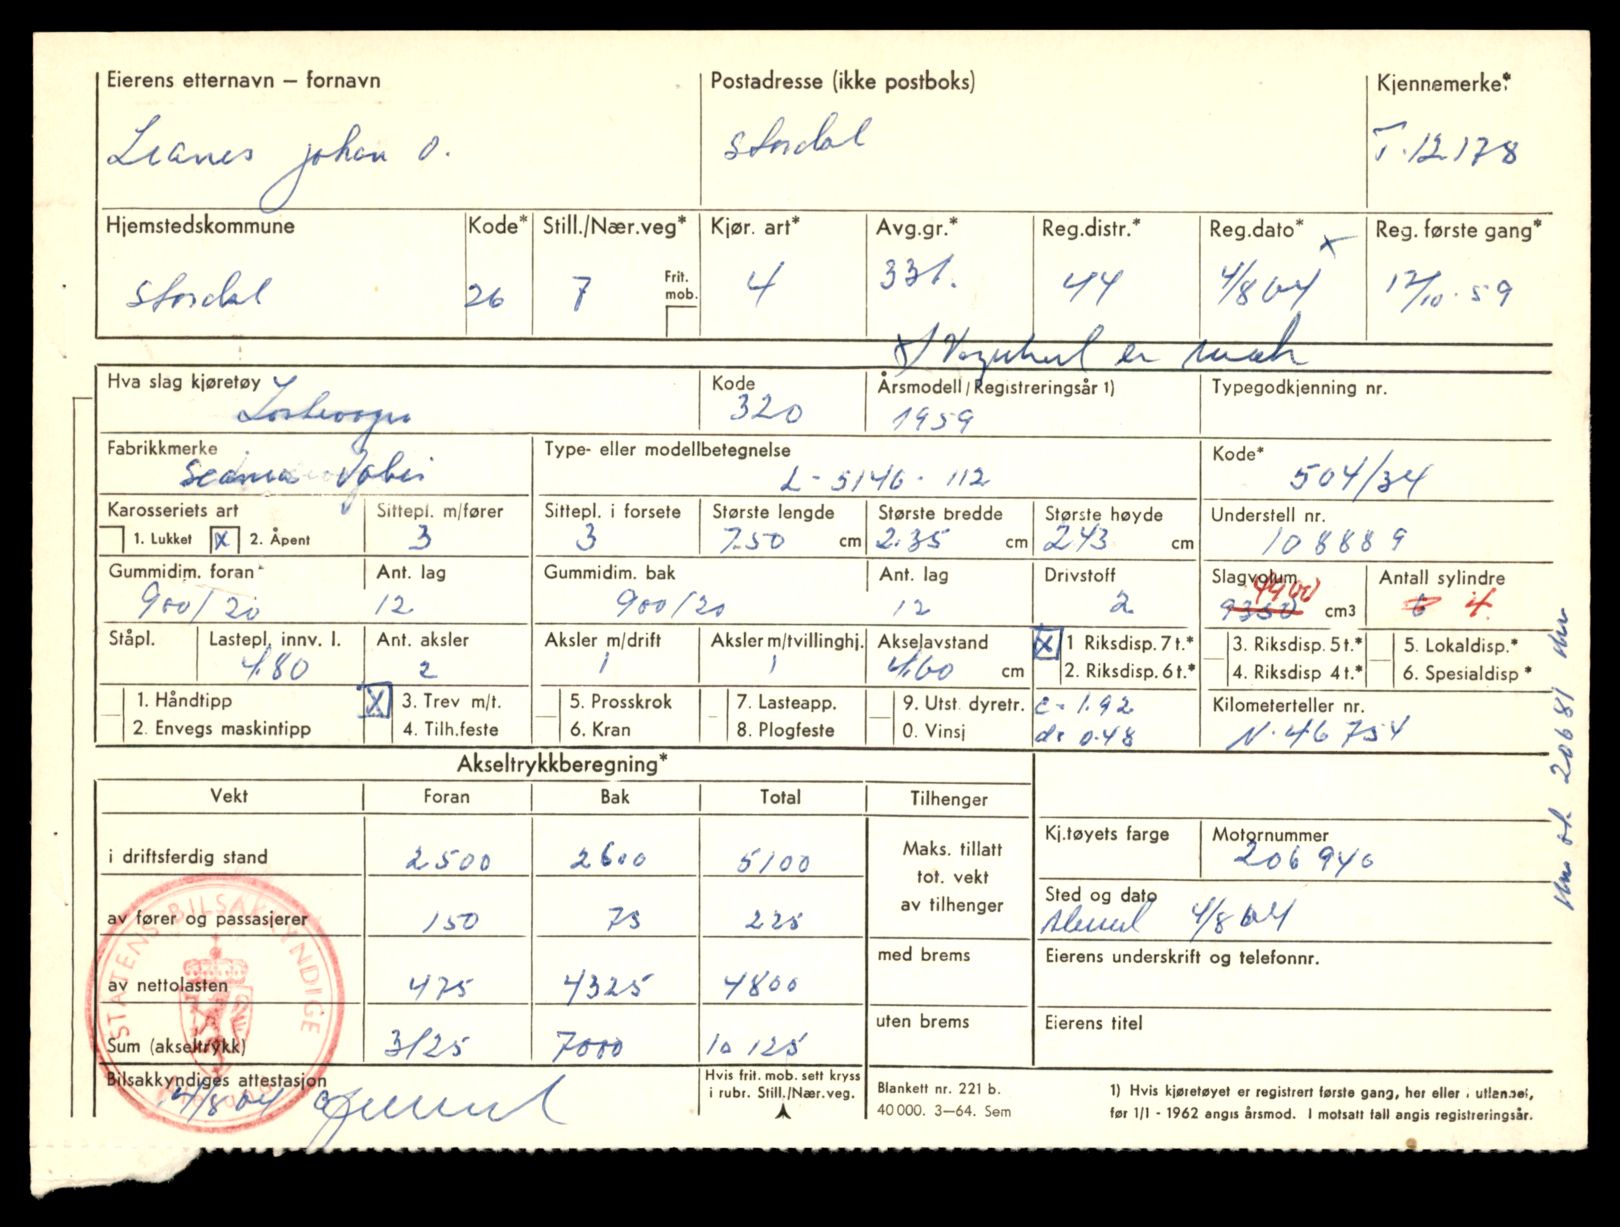 Eierens etternavn – fornavn Postadresse (ikke postboks) Kjennemerke:*
Lianes Johan O. Stordal T-12178
Hjemstedskommune Kode* Still./Nær.veg* Kjør. art* Avg.gr.* Reg.distr.* Reg.dato* Reg. første gang*
Stordal 26 7 Frit. mob. 4 331. 44 4/8 64 x 12/10-59
x) Vognkort er
Hva slag kjøretøy Kode Årsmodell / Registreringsår 1) Typegodkjenning nr.
Lastevogn 320 1959
Fabrikkmerke Type- eller modellbetegnelse Kode*
Scania Vabis L-5146-112 504/34
Karosseriets art Sittepl. m/fører Sittepl. i forsete Største lengde Største bredde Største høyde Understell nr.
1. Lukket X 2. Åpent 3 3 7.50 cm 2.35 cm 243 cm 108889
Gummidim. foran Ant. lag Gummidim. bak Ant. lag Drivstoff Slagvolum Antall sylindre
900/20 12 900/20 12 2 9350 4900 cm3 6 4
Ståpl. Lastepl. innv. l. Ant. aksler Aksler m/drift Aksler m/tvillinghj. Akselavstand X 1 Riksdisp. 7 t.* 3. Riksdisp. 5 t.* 5. Lokaldisp.*
4.80 2 1 1 4.60 cm 2. Riksdisp. 6 t.* 4. Riksdisp 4 t.* 6. Spesialdisp *
1. Håndtipp X 3. Trev m/t. 5. Prosskrok 7. Lasteapp. 9. Utst. dyretr. c = 1.92 Kilometerteller nr.
2. Envegs maskintipp 4. Tilh.feste 6. Kran 8. Plogfeste 0. Vinsj d = 0.48 N-46754
Akseltrykkberegning*
Vekt Foran Bak Total Tilhenger
i driftsferdig stand 2500 2600 5100
Maks. tillatt
tot. vekt
av tilhenger
Kj.tøyets farge Motornummer
206940
av fører og passasjerer 150 75 225
Sted og dato
4/8 64
av nettolasten 475 4325 4800
med brems
Eierens underskrift og telefonnr.
Sum (akseltrykk) 3125 7000 10125
uten brems
Eierens titel
Bilsakkyndiges attestasjon
4/8 64
Hvis frit. mob. sett kryss
i rubr. Still./Nær.veg.
Blankett nr. 221 b.
40 000. 3–64. Sem
1) Hvis kjøretøyet er registrert første gang, her eller i utlandet,
før 1/1 - 1962 angis årsmod. I motsatt fall angis registreringsår.
STATENS BILSAKKYNDIGE
206 81